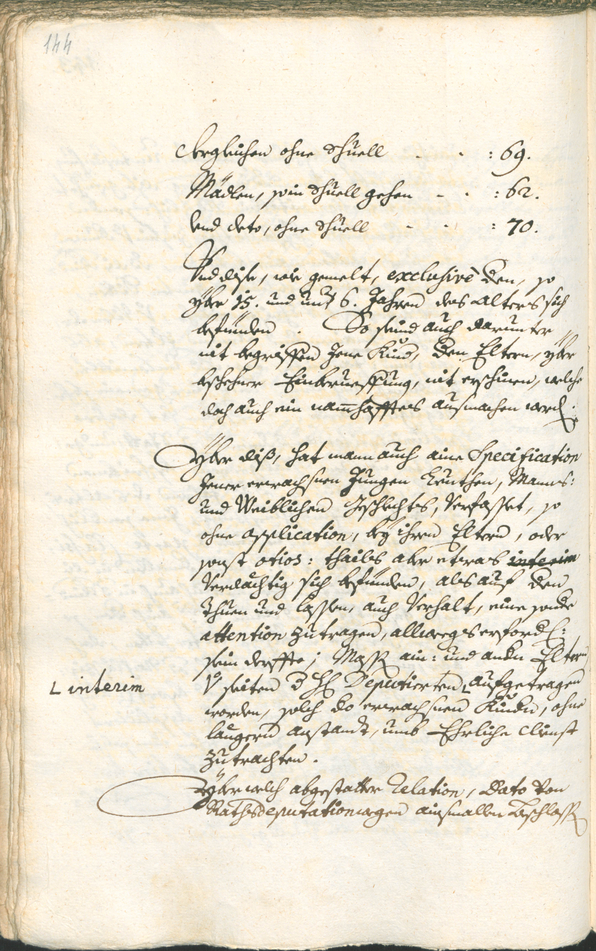 144
dergleichen ohne Schuell - - - : 69.
Mädlen, so in Schuell gehen - - : 62.
Und deto, ohne Schuell - - - : 70.
Und dise, wie gemelt, exclusivè den, so
yber 15. und unts 6. Jahren des alters sich
befünden. So seind auch darunter
nit begriffen jene Künd, den Eltern, yber
beschehner Einberueffung, nit erschinen, welche
doch auch ein namhafftes ausmachen werd.
Yber diß, hat mann auch aine Specification
jener erwachsnen Jungen Leüthen, Manns-
und Weiblichen Geschlechts, verfasset, so
ohne application, bey ihren Eltern, oder
sonst otios: thailß aber etwas interim
verdächtig sich befünden, alß auf den
thuen und lassen, auch verhalt, eine sonde
attention zutragen, allweegs erforderl:
sein derffte; ain: und andern Eltern
v seiten Deputierten ⌊ aufgetragen
⌊ interim
worden, solch do erwachsnen Kündern, ohne
längern anstandt, umb Ehrliche Dienst
zutrachten.
Yber welch abgestatter Relation, dato von
Raths deputations wegen ainsmallen beschlossn